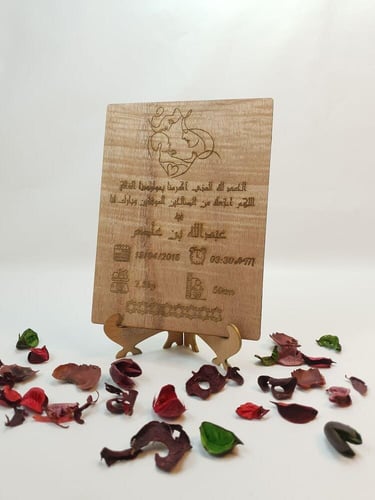 الحمد لله الذي اكرمنا بمولودنا الغالي
اللهم اجعله من الصالحين الموفقين وبارك لنا
فيه
عبدالله بن عاصم
18/04/2016 03:30
50cm